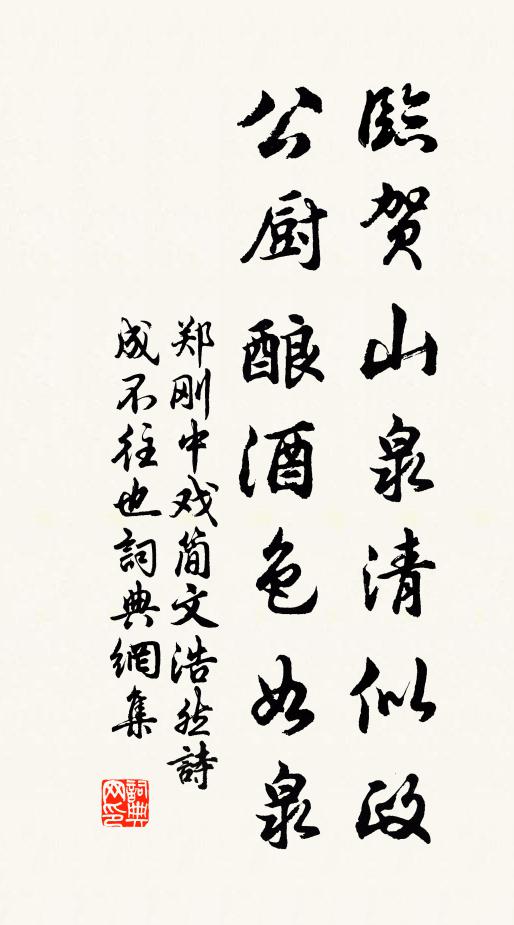 臨贺山泉清似政
公厨酿酒色如泉
郑刚中戏简文浩然詩
成不往也詞典網集
詞典
网印